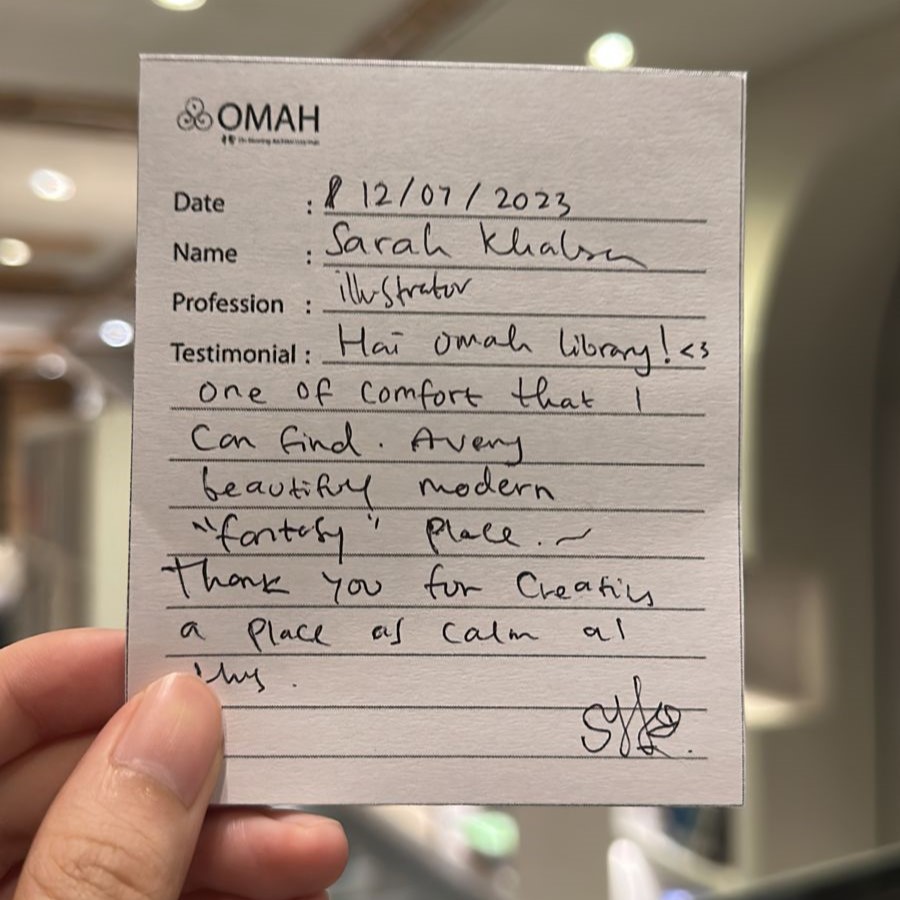 OMAH
Date : 12/07/2023
Name : Sarah
Profession : illustrator
Testimonial : Hai omah library! <3
one of comfort that I
can find. A very
beautifuy modern
"fantasy" place. ~
Thank you for Creating
a place as calm as
this.